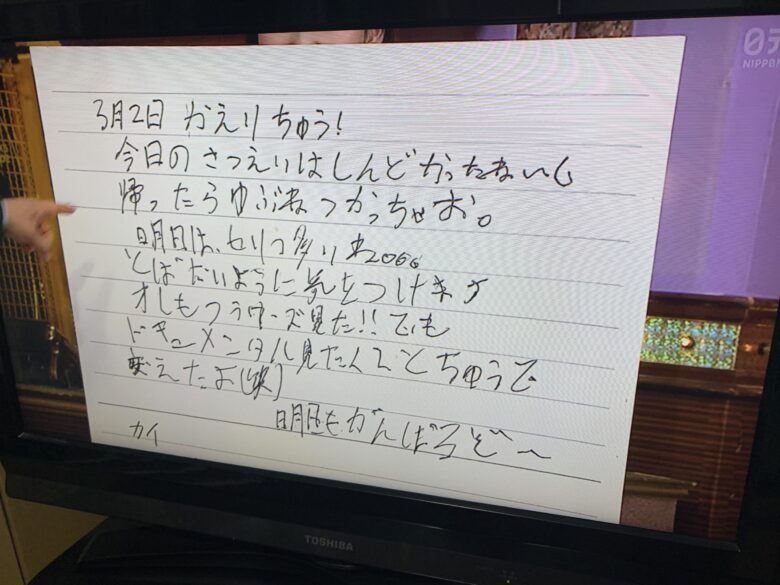 3月2日 かえりちゅう!
今日のさつえいはしんどかったねい〜
帰ったらゆぶねつかっちゃお。
明日は、セリフ多いね
とばないように気をつけます
オレもフラワーズ見た!!でも
ドキュメンタル見たくてとちゅうで
変えたよ(笑)
明日もがんばろぞ〜
カイ
日テ
NIPPON
TOSHIBA